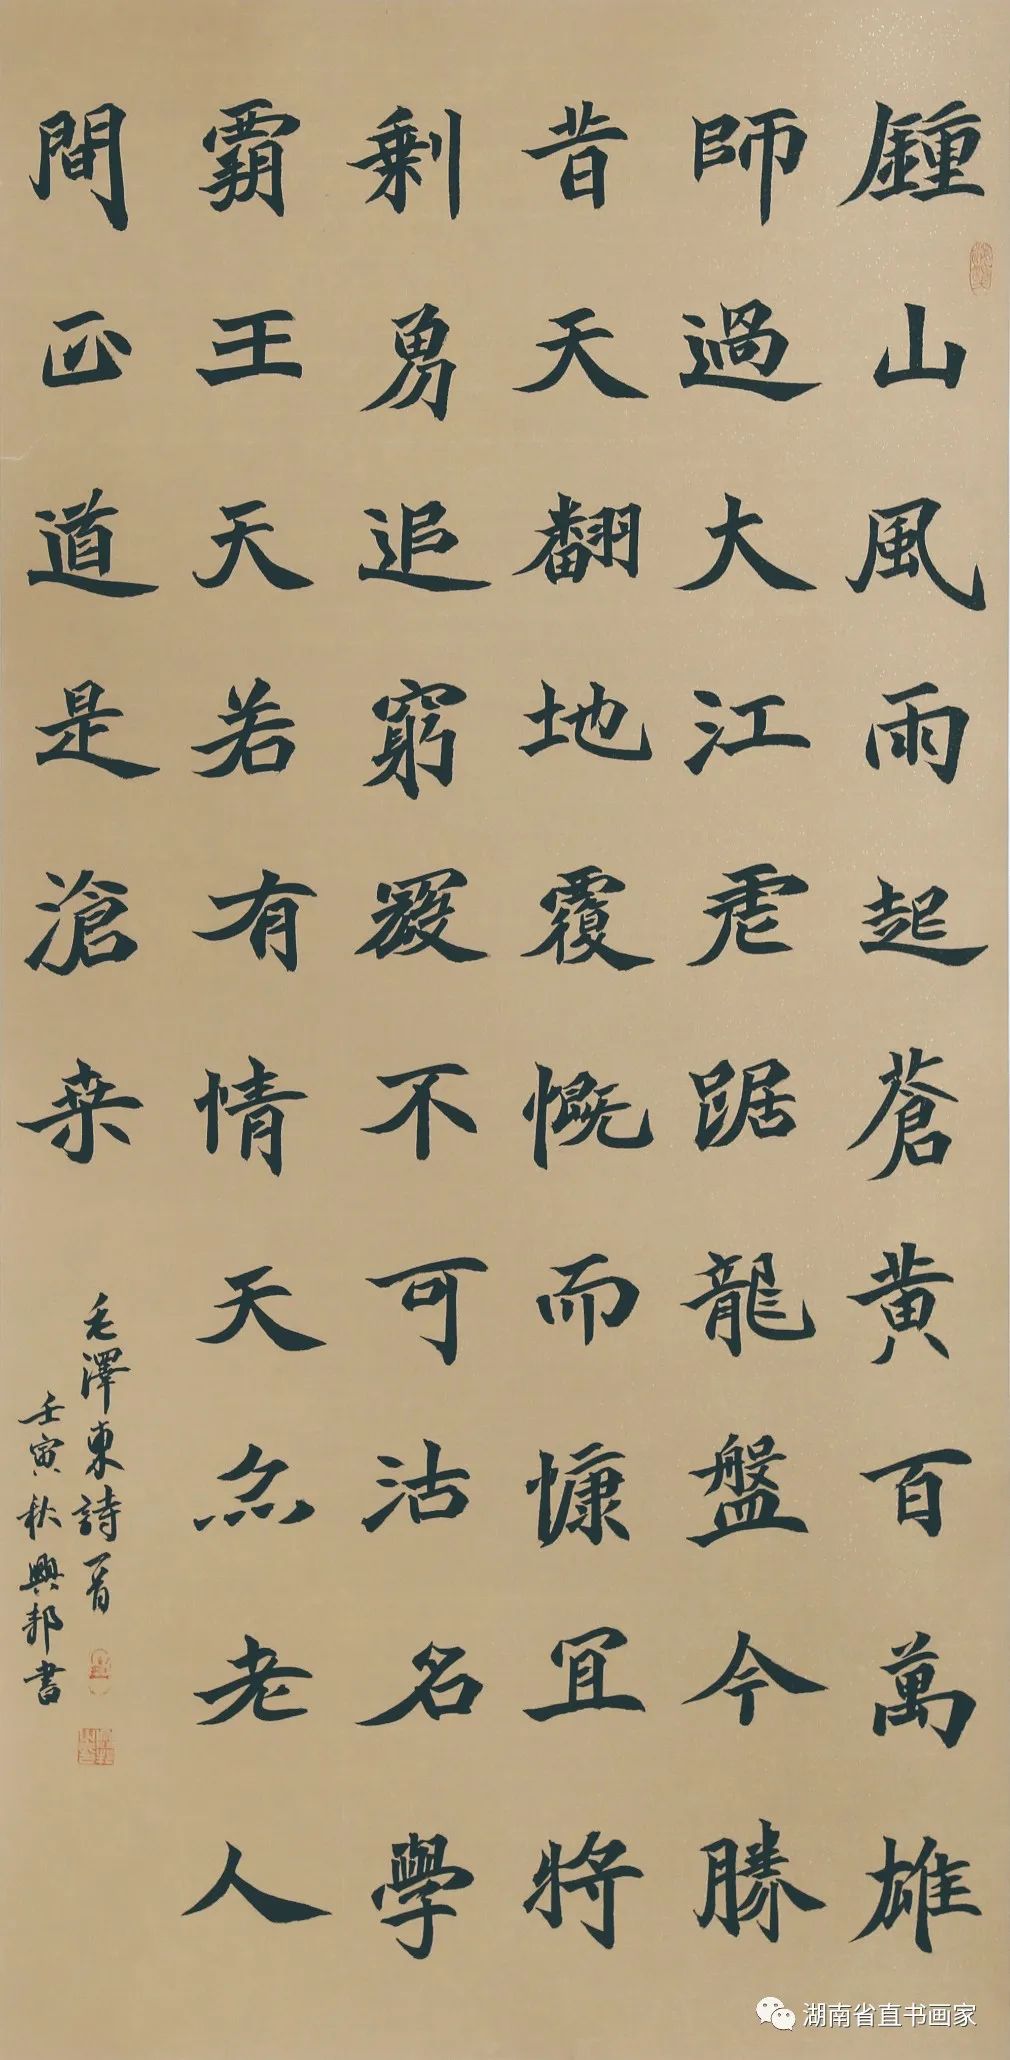 鍾山風雨起蒼黄百萬雄
師過大江虎踞龍盤今勝
昔天翻地覆慨而慷宜將
剩勇追窮寇不可沽名學
霸王天若有情天亦老人
間正道是滄桑
毛澤東詩一首
壬寅秋興邦書
湖南省直书画家